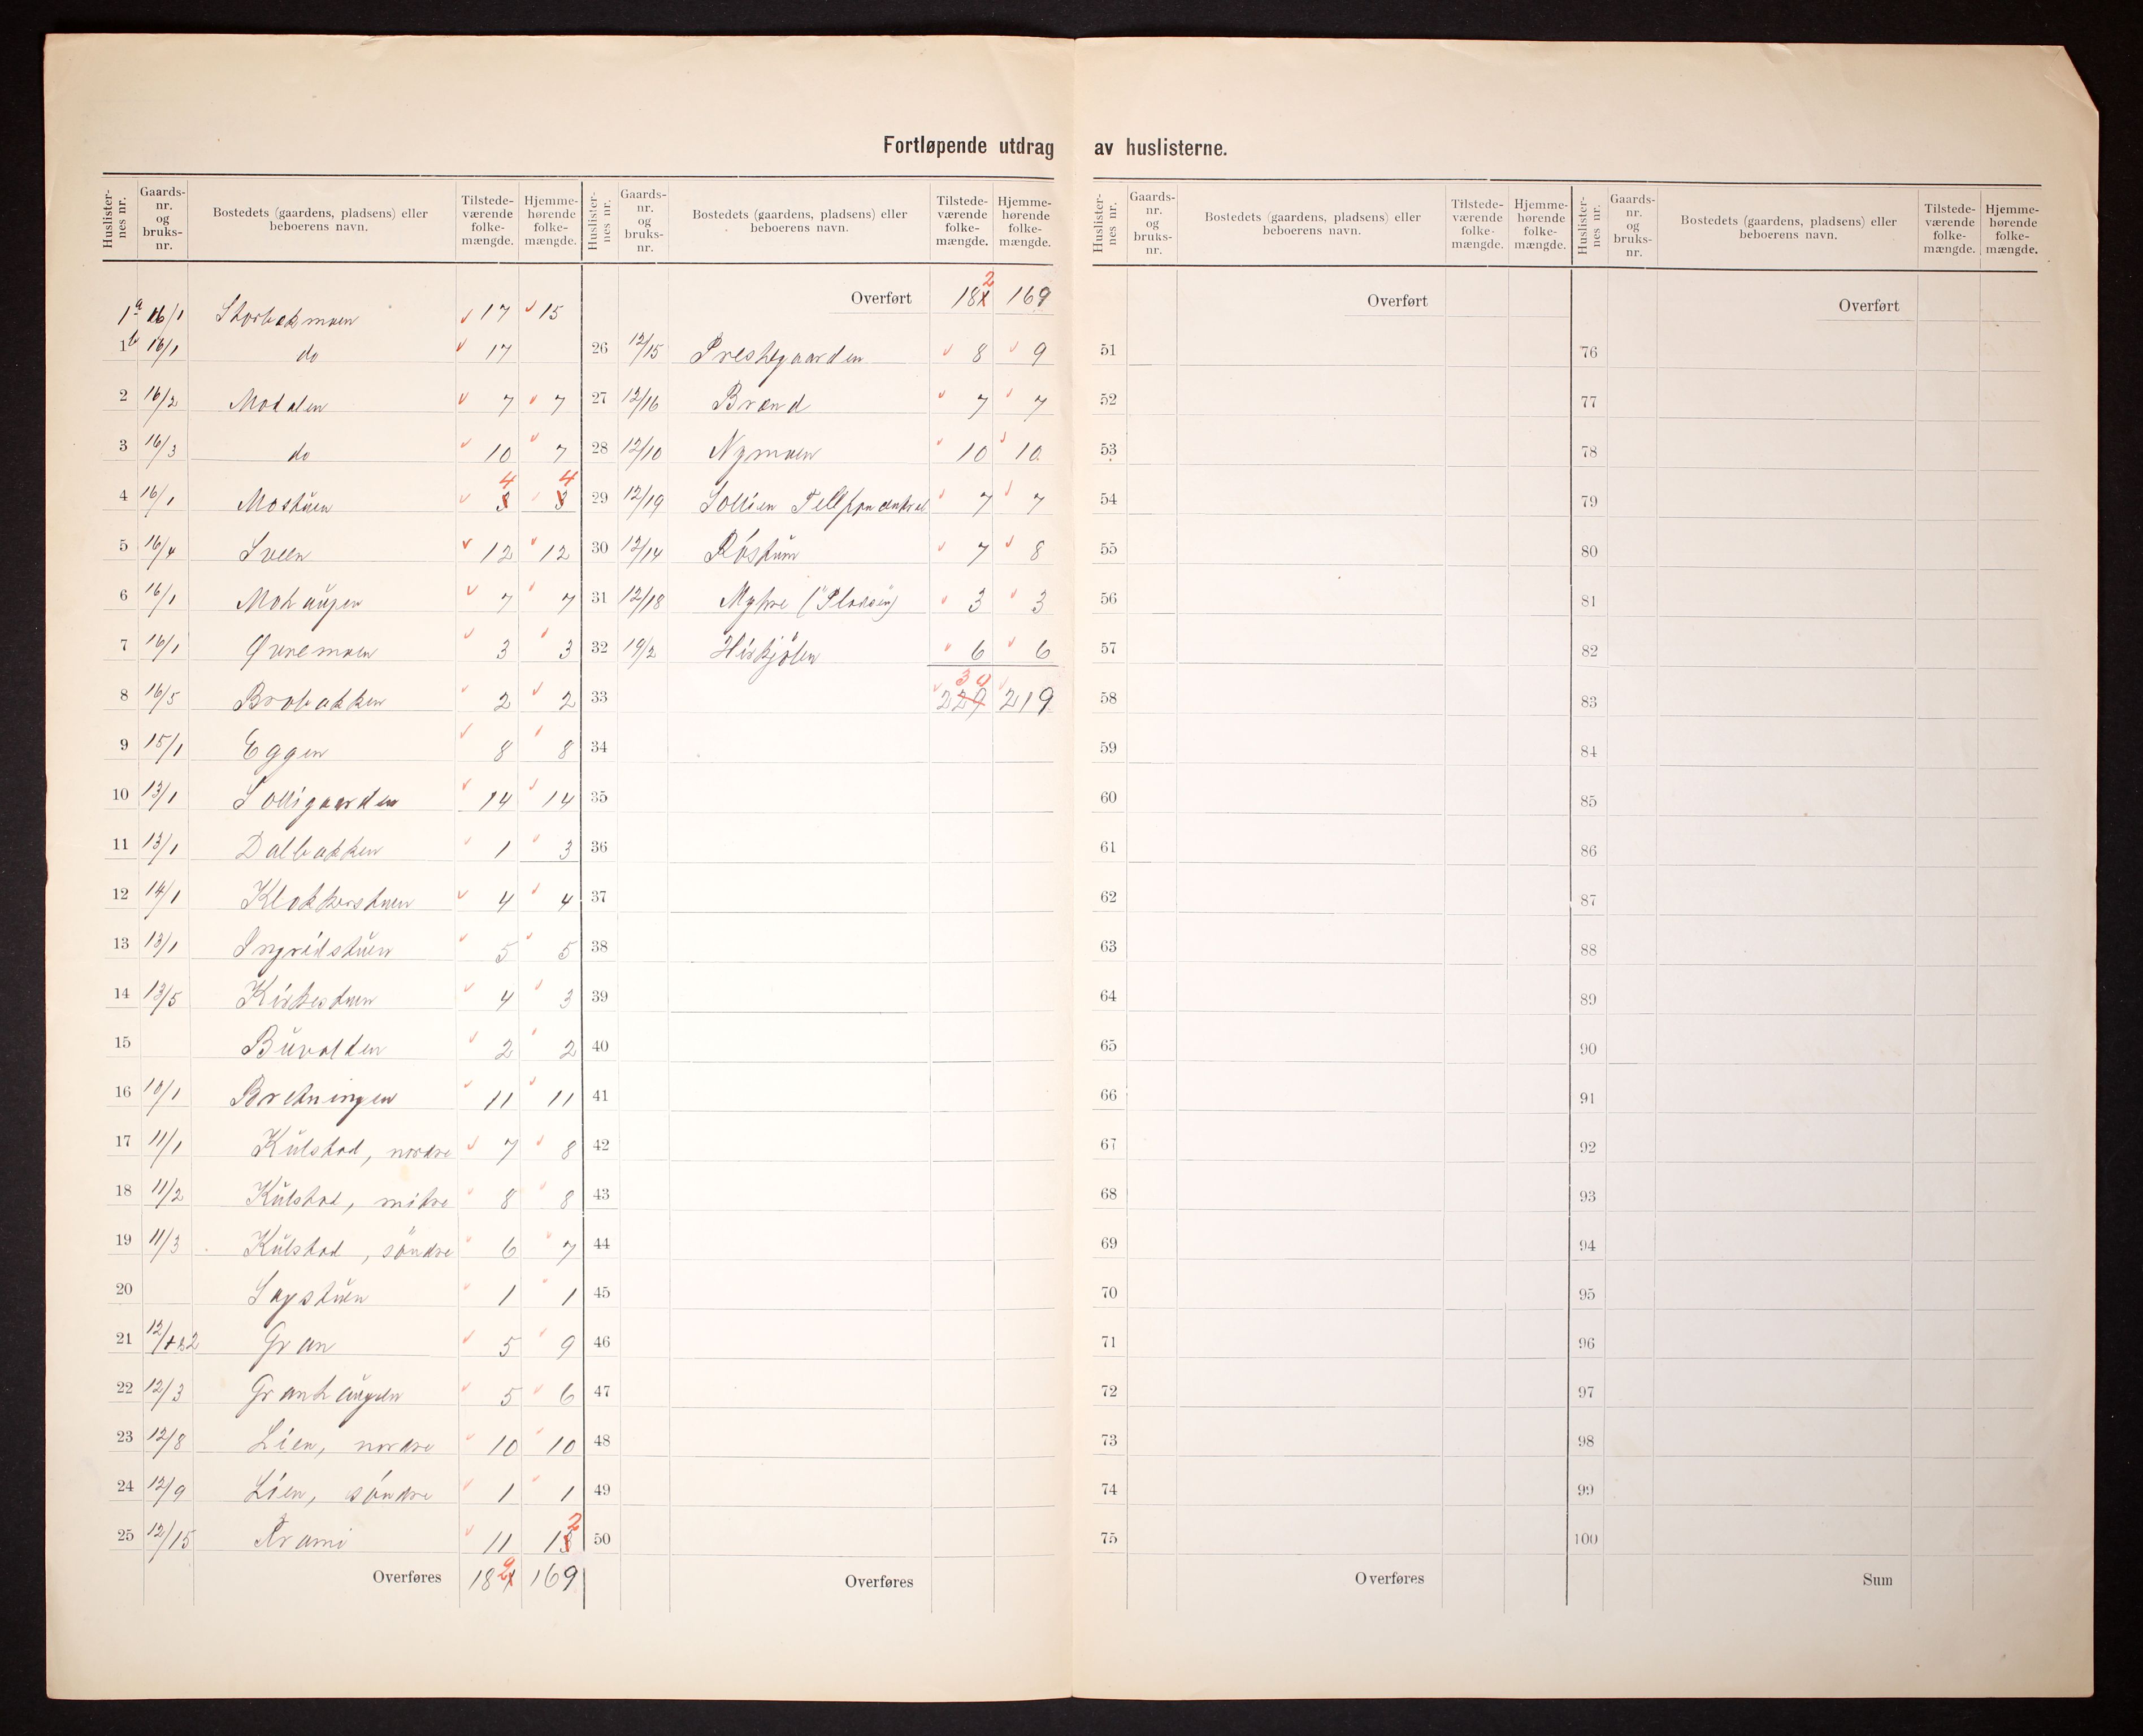 Fortløpende utdrag av huslisterne.
Huslisternes nr. Gaardsnr. og bruksnr. Bostedets (gaardens, pladsens) eller beboerens navn. Tilstedeværende folkemængde. Hjemmehørende folkemængde.
1a 16/1 Storbakmoen 17 15
1b 16/1 do 17
2 16/2 Modalen 7 7
3 16/3 do 10 7
4 16/1 Mostuen 3 4 3 4
5 16/4 Sveen 12 12
6 16/1 Mohaugen 7 7
7 16/1 Øvremoen 3 3
8 16/5 Brobakken 2 2
9 15/1 Eggen 8 8
10 13/1 Solligaarden 14 14
11 13/1 Dalbakken 1 3
12 14/1 Klokkerstuen 4 4
13 13/1 Ingridstuen 5 5
14 13/5 Kirkestuen 4 3
15 Buvolden 2 2
16 10/1 Bretningen 11 11
17 11/1 Kulstad, nordre 7 8
18 11/2 Kulstad, mitre 8 8
19 11/3 Kulstad, söndre 6 7
20 Sagstuen 1 1
21 Gran 5 9
22 12/3 Granhaugen 5 6
23 12/8 Lien, nordre 10 10
24 12/9 Lien, söndre 1 1
25 12/15 11 13 2
Overføres 181 2 169
Huslisternes nr. Gaardsnr. og bruksnr. Bostedets (gaardens, pladsens) eller beboerens navn. Tilstedeværende folkemængde. Hjemmehørende folkemængde.
Overført 181 2 169
26 12/15 Prestegaarden 8 9
27 12/16 Brænd 7 7
28 12/10 Nymoen 10 10
29 12/19 Sollien Telefoncentral 7 7
30 12/14 Röstum 7 8
31 12/18 Myhre (Pladsen) 3 3
32 19/2 Hirkjølen 6 6
33 229 30 219
34
35
36
37
38
39
40
41
42
43
44
45
46
47
48
49
50
Overføres
Huslisternes nr. Gaardsnr. og bruksnr. Bostedets (gaardens, pladsens) eller beboerens navn. Tilstedeværende folkemængde. Hjemmehørende folkemængde.
Overført
51
52
53
54
55
56
57
58
59
60
61
62
63
64
65
66
67
68
69
70
71
72
73
74
75
Overføres
Huslisternes nr. Gaardsnr. og bruksnr. Bostedets (gaardens, pladsens) eller beboerens navn. Tilstedeværende folkemængde. Hjemmehørende folkemængde.
Overført
76
77
78
79
80
81
82
83
84
85
86
87
88
89
90
91
92
93
94
95
96
97
98
99
100
Sum